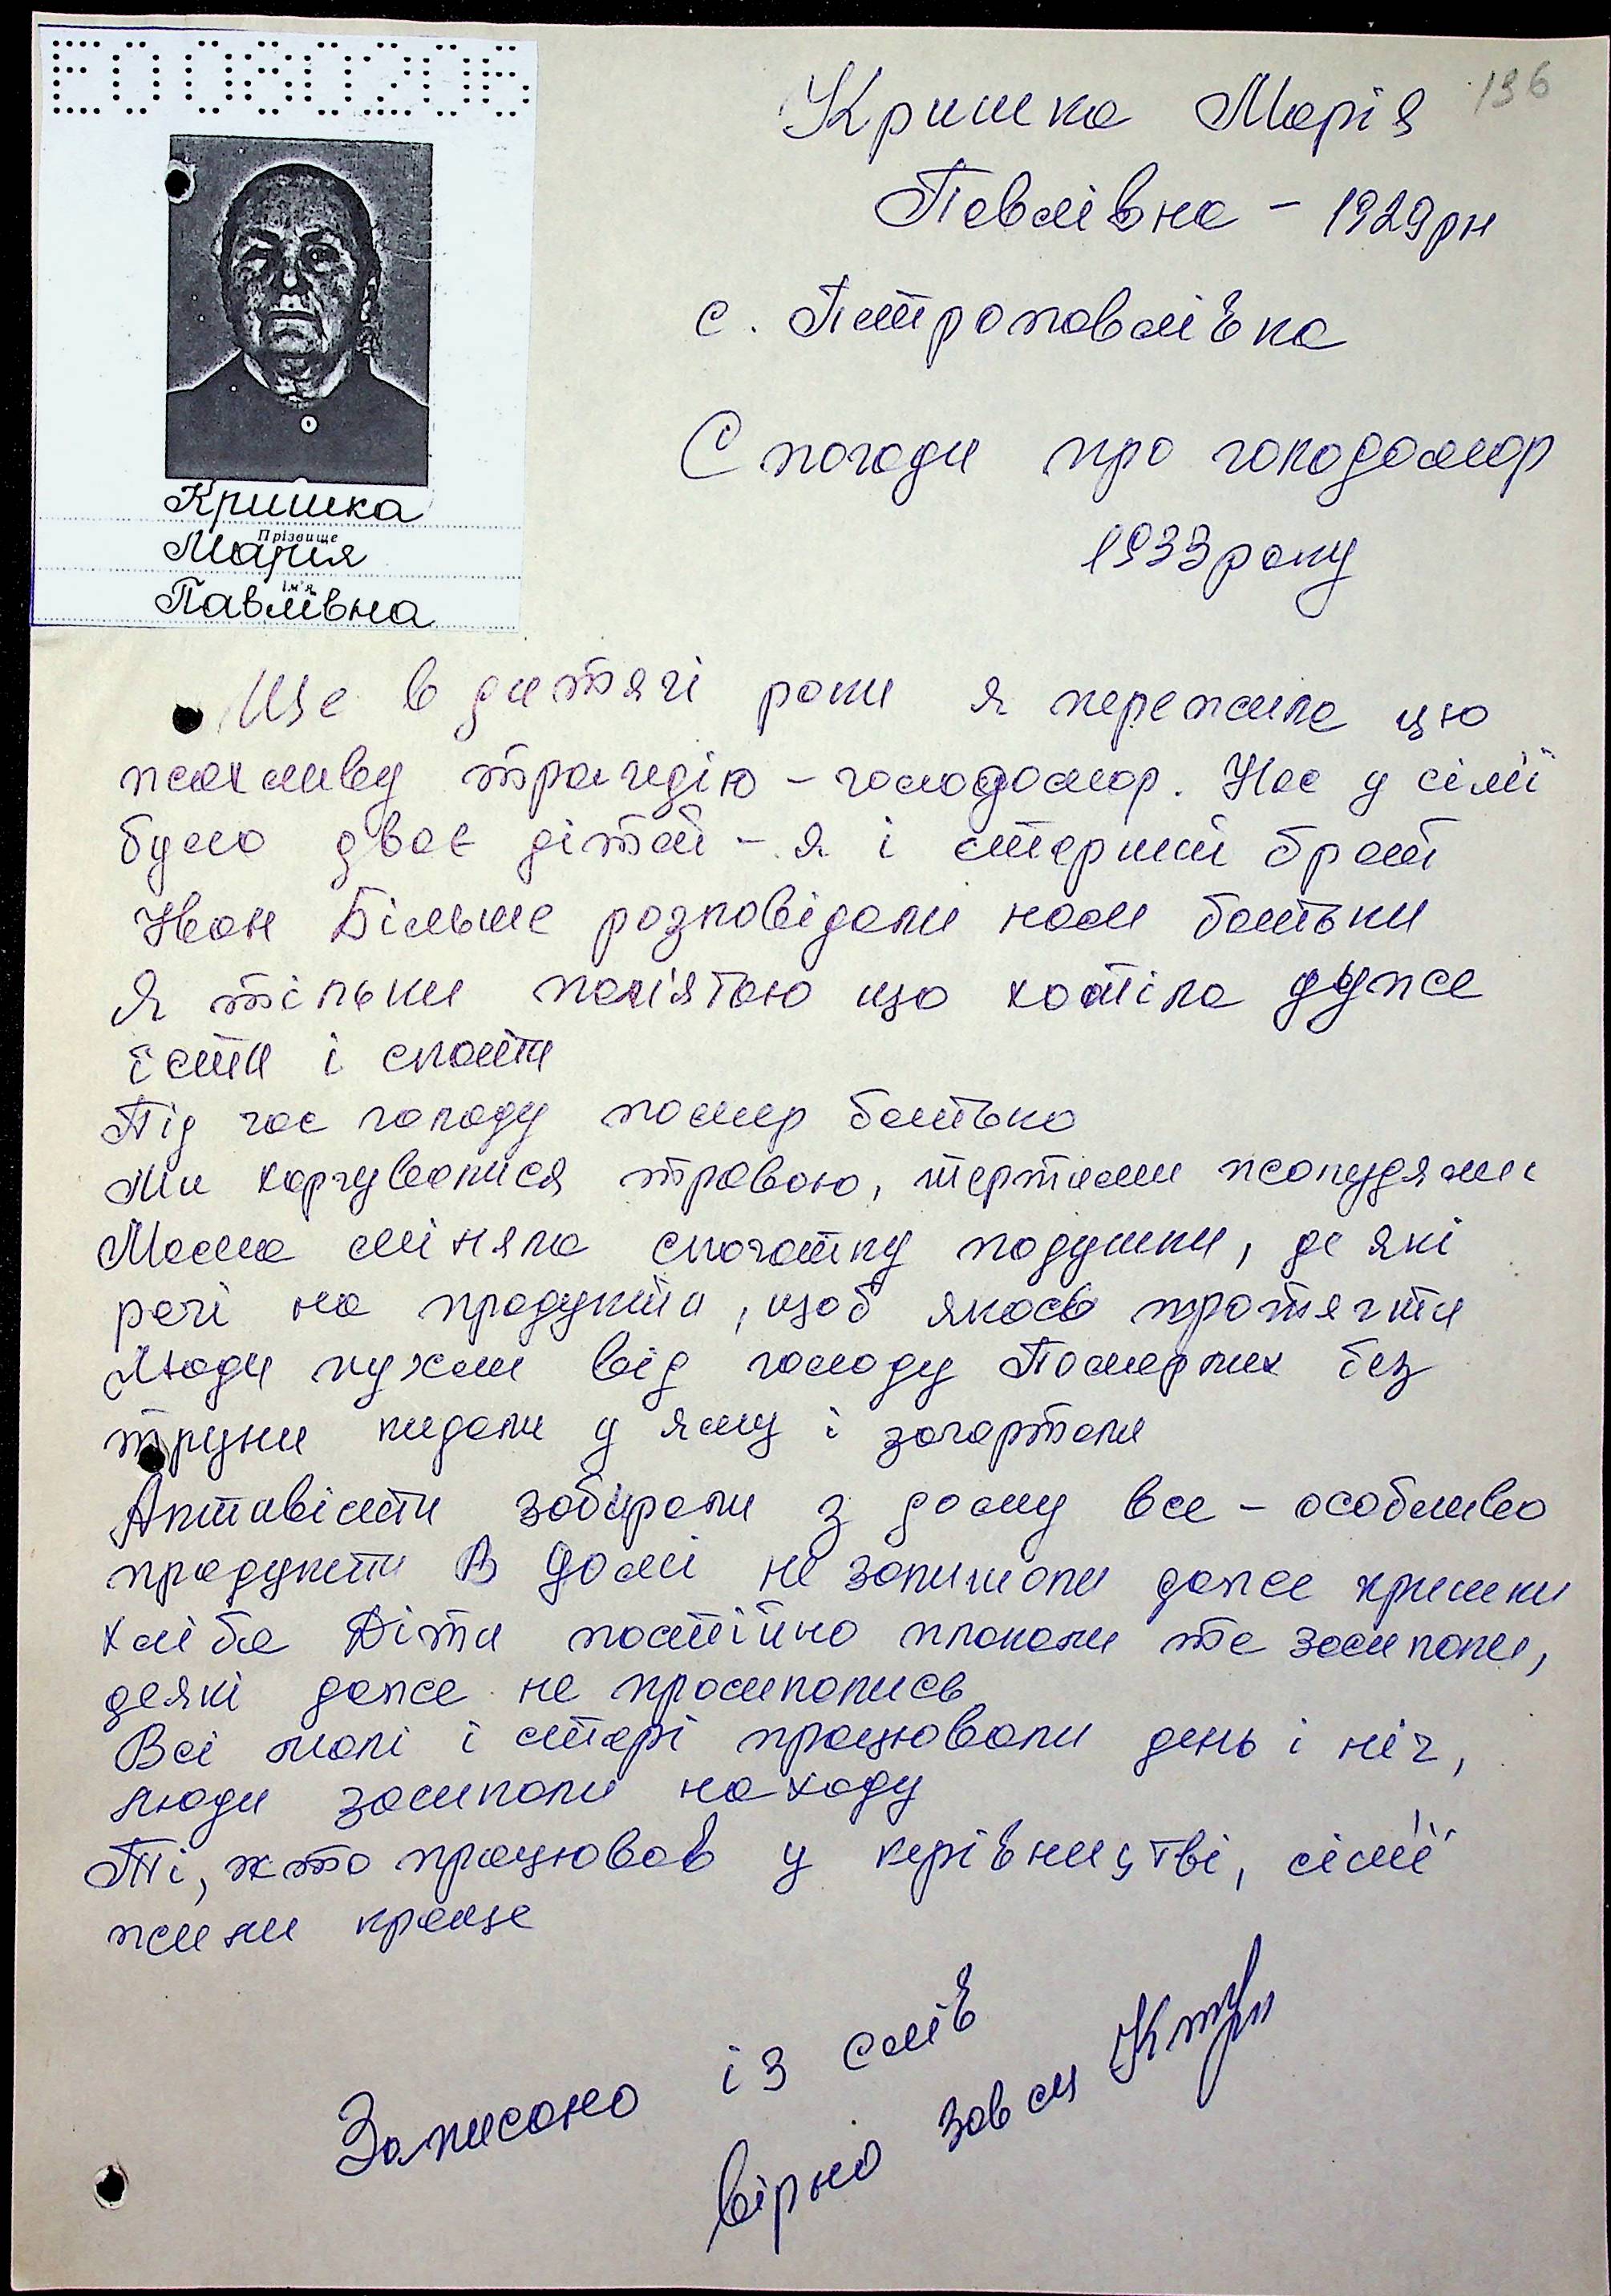 ЕО080206
136
Кришка Марія
Павлівна - 1929рн
с. Петропавлівка
Спогади про голодомор
1933року
Кришка
Прізвище
Марія
Ім'я
Павлівна
Ще в дитячі роки я пережила цю
жахливу трагедію - голодомор. Нас у сім'ї
було двоє дітей - я і старший брат
Иван Більше розповідали нам батьки
Я тільки пам'ятаю що хотіла дуже
їсти і спати
Під час голоду помер батько
Ми харчувалися травою, тертими жолудями
Мама міняла спочатку подушки, де які
речі на продукти, щоб якось протягти
Люди пухли від голоду Померлих без
труни кидали у яму і загартали
Активісти забирали з дому все - особливо
продукти В домі не залишали даже кришки
хліба Діти постійно плакали те засипали,
деякі даже не просипались
Всі малі і старі працювали день і ніч,
люди засипали на ходу
Ті, хто працював у керівництві, сім'ї
жили краще
Записано із слів
вірно зав